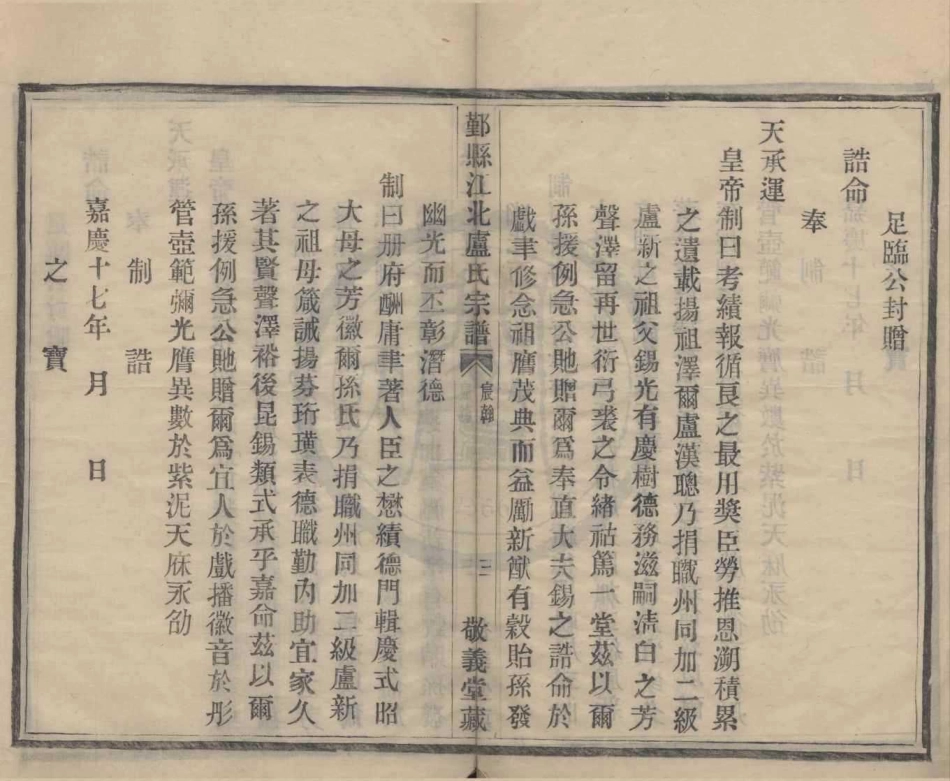 足臨公封贈
誥命
奉　制　誥
天承運
皇帝制曰考績報循良之最用奬臣勞推恩溯積累
之遺載揚祖澤爾盧漢聰乃捐職州同加二級
盧新之祖父錫光有慶樹德務滋嗣淸白之芳
聲澤留再世衍弓裘之令緒祜篤一堂茲以爾
孫援例急公貤贈爾爲奉直大夫錫之誥命於
戲聿修念祖膺茂典而益勵新猷有穀貽孫發
鄞縣江北盧氏宗譜　宸翰　三　敬義堂藏
幽光而丕彰潛德
制曰册府酬庸聿著人臣之懋績德門輯慶式昭
大母之芳徽爾孫氏乃捐職州同加二級盧新
之祖母箴誡揚芬珩璜表德職勤內助宜家久
著其賢聲澤裕後昆錫類式承乎嘉命茲以爾
孫援例急公貤贈爾爲宜人於戲播徽音於彤
管壺範彌光膺異數於紫泥天庥永劭
制　誥
嘉慶十七年　月　日
之　寶